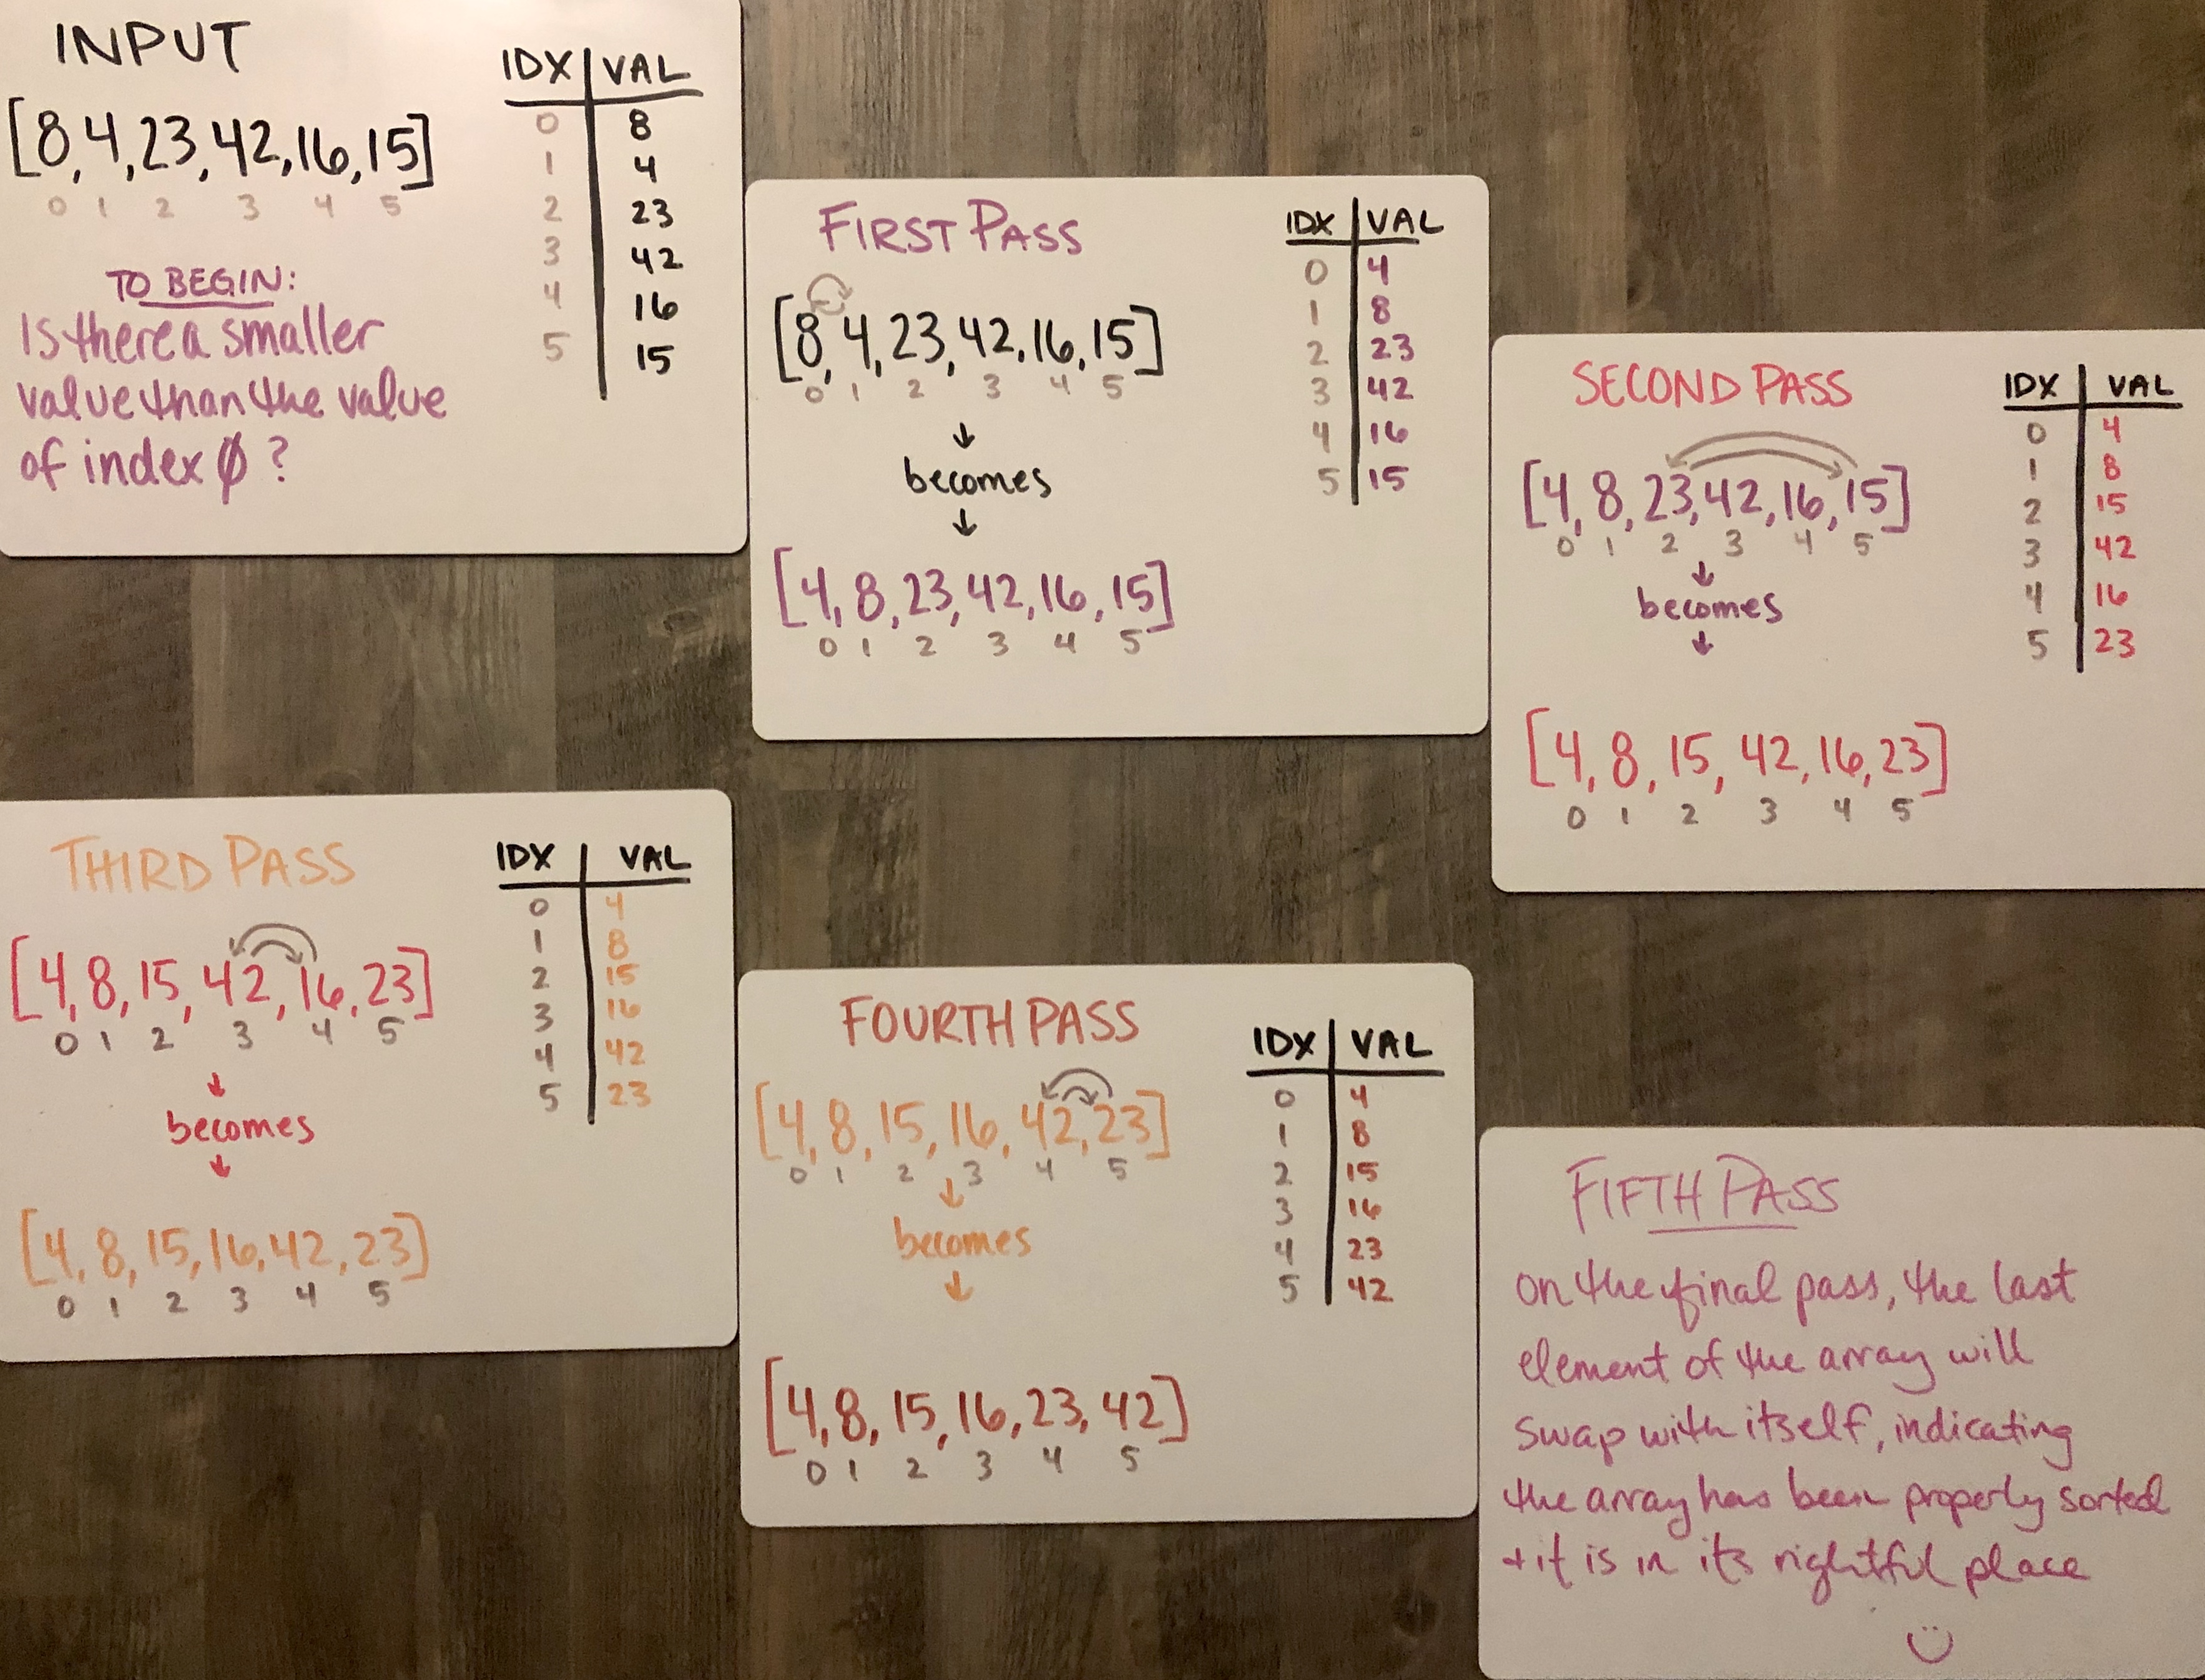 INPUT
[8, 4, 23, 42, 16, 15]
0 1 2 3 4 5
TO BEGIN:
Is there a smaller
value than the value
of index Ø ?
IDX VAL
0 8
1 4
2 23
3 42
4 16
5 15
FIRST PASS
[8, 4, 23, 42, 16, 15]
0 1 2 3 4 5
↓
becomes
↓
[4, 8, 23, 42, 16, 15]
0 1 2 3 4 5
IDX VAL
0 4
1 8
2 23
3 42
4 16
5 15
SECOND PASS
[4, 8, 23, 42, 16, 15]
0 1 2 3 4 5
↓
becomes
↓
[4, 8, 15, 42, 16, 23]
0 1 2 3 4 5
IDX VAL
0 4
1 8
2 15
3 42
4 16
5 23
THIRD PASS
[4, 8, 15, 42, 16, 23]
0 1 2 3 4 5
↓
becomes
↓
[4, 8, 15, 16, 42, 23]
0 1 2 3 4 5
IDX VAL
0 4
1 8
2 15
3 16
4 42
5 23
FOURTH PASS
[4, 8, 15, 16, 42, 23]
0 1 2 3 4 5
↓
becomes
↓
[4, 8, 15, 16, 23, 42]
0 1 2 3 4 5
IDX VAL
0 4
1 8
2 15
3 16
4 23
5 42
FIFTH PASS
on the final pass, the last
element of the array will
swap with itself, indicating
the array has been properly sorted
+ it is in its rightful place